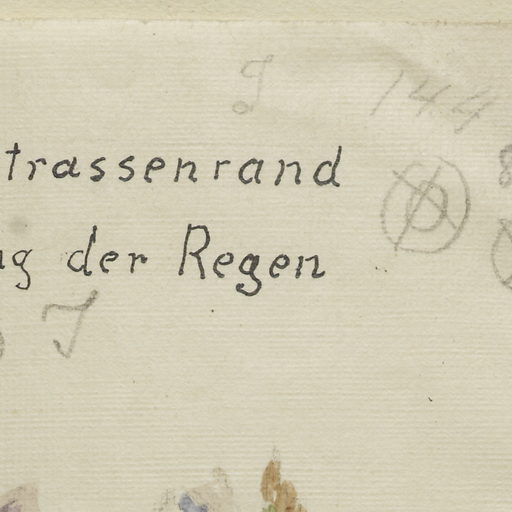 J 144
trassenrand
ng der Regen
J